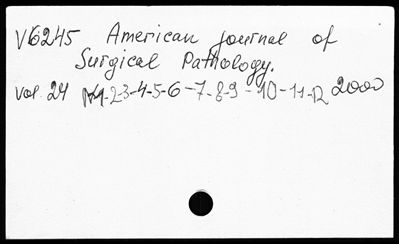 V6245 American journal of
Surgical Pathology.
vol 24 N1-2-3-4-5-6-7-8-9-10-11-12 2000